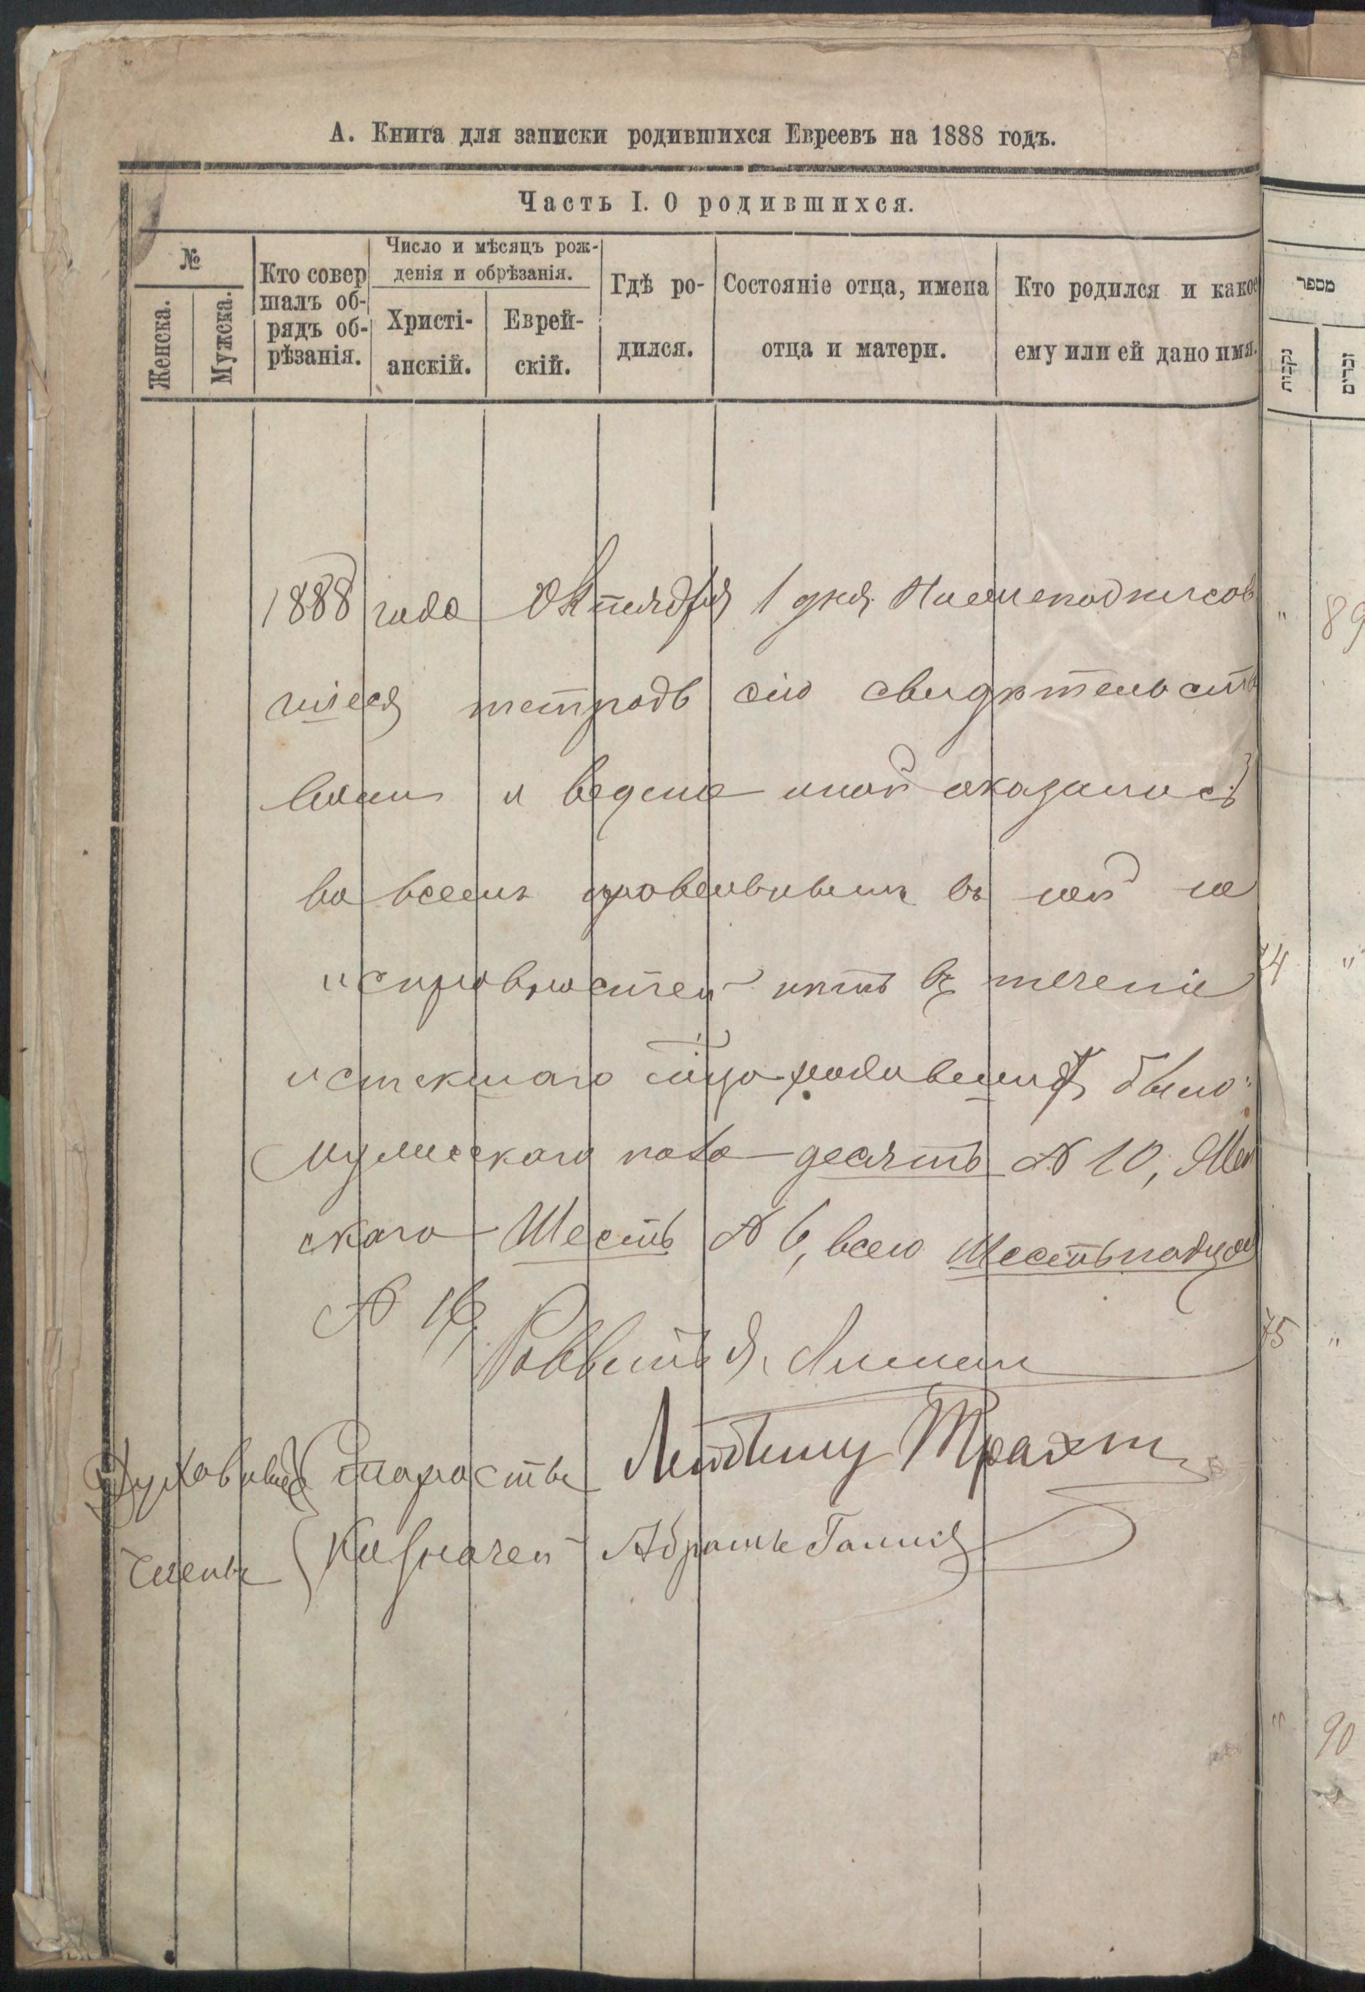 А. Книга для записки родившихся Евреевъ на 1888 годъ.
Часть I. О родившихся.
№
Женска.
Мужска.
Кто совер
шалъ об-
рядъ об-
рѣзанія.
Число и мѣсяцъ рож-
денія и обрѣзанія.
Христі-
анскій.
Еврей-
скій.
Гдѣ ро-
дился.
Состояніе отца, имена
отца и матери.
Кто родился и какое
ему или ей дано имя.
1888 года Октября 1 дня Нижеподписав
шіеся тетрадь сію свидѣтельств
вали и веденіе оной оказалось
во всемъ правельнымъ въ ней не
исправностей нѣтъ въ теченіи
истекшаго м-ца родившихъ было:
Мужескаго пола десять № 10, Жен
скаго Шесть № 6, всего Шестьнадцать
№ 16,
Раввинъ Я.
Духовныхъ Староста Лейбишъ Трахт
Членъ Казначей Абрамъ
מספר
נקבות
זכרים
" 89
74 "
75 "
" 90